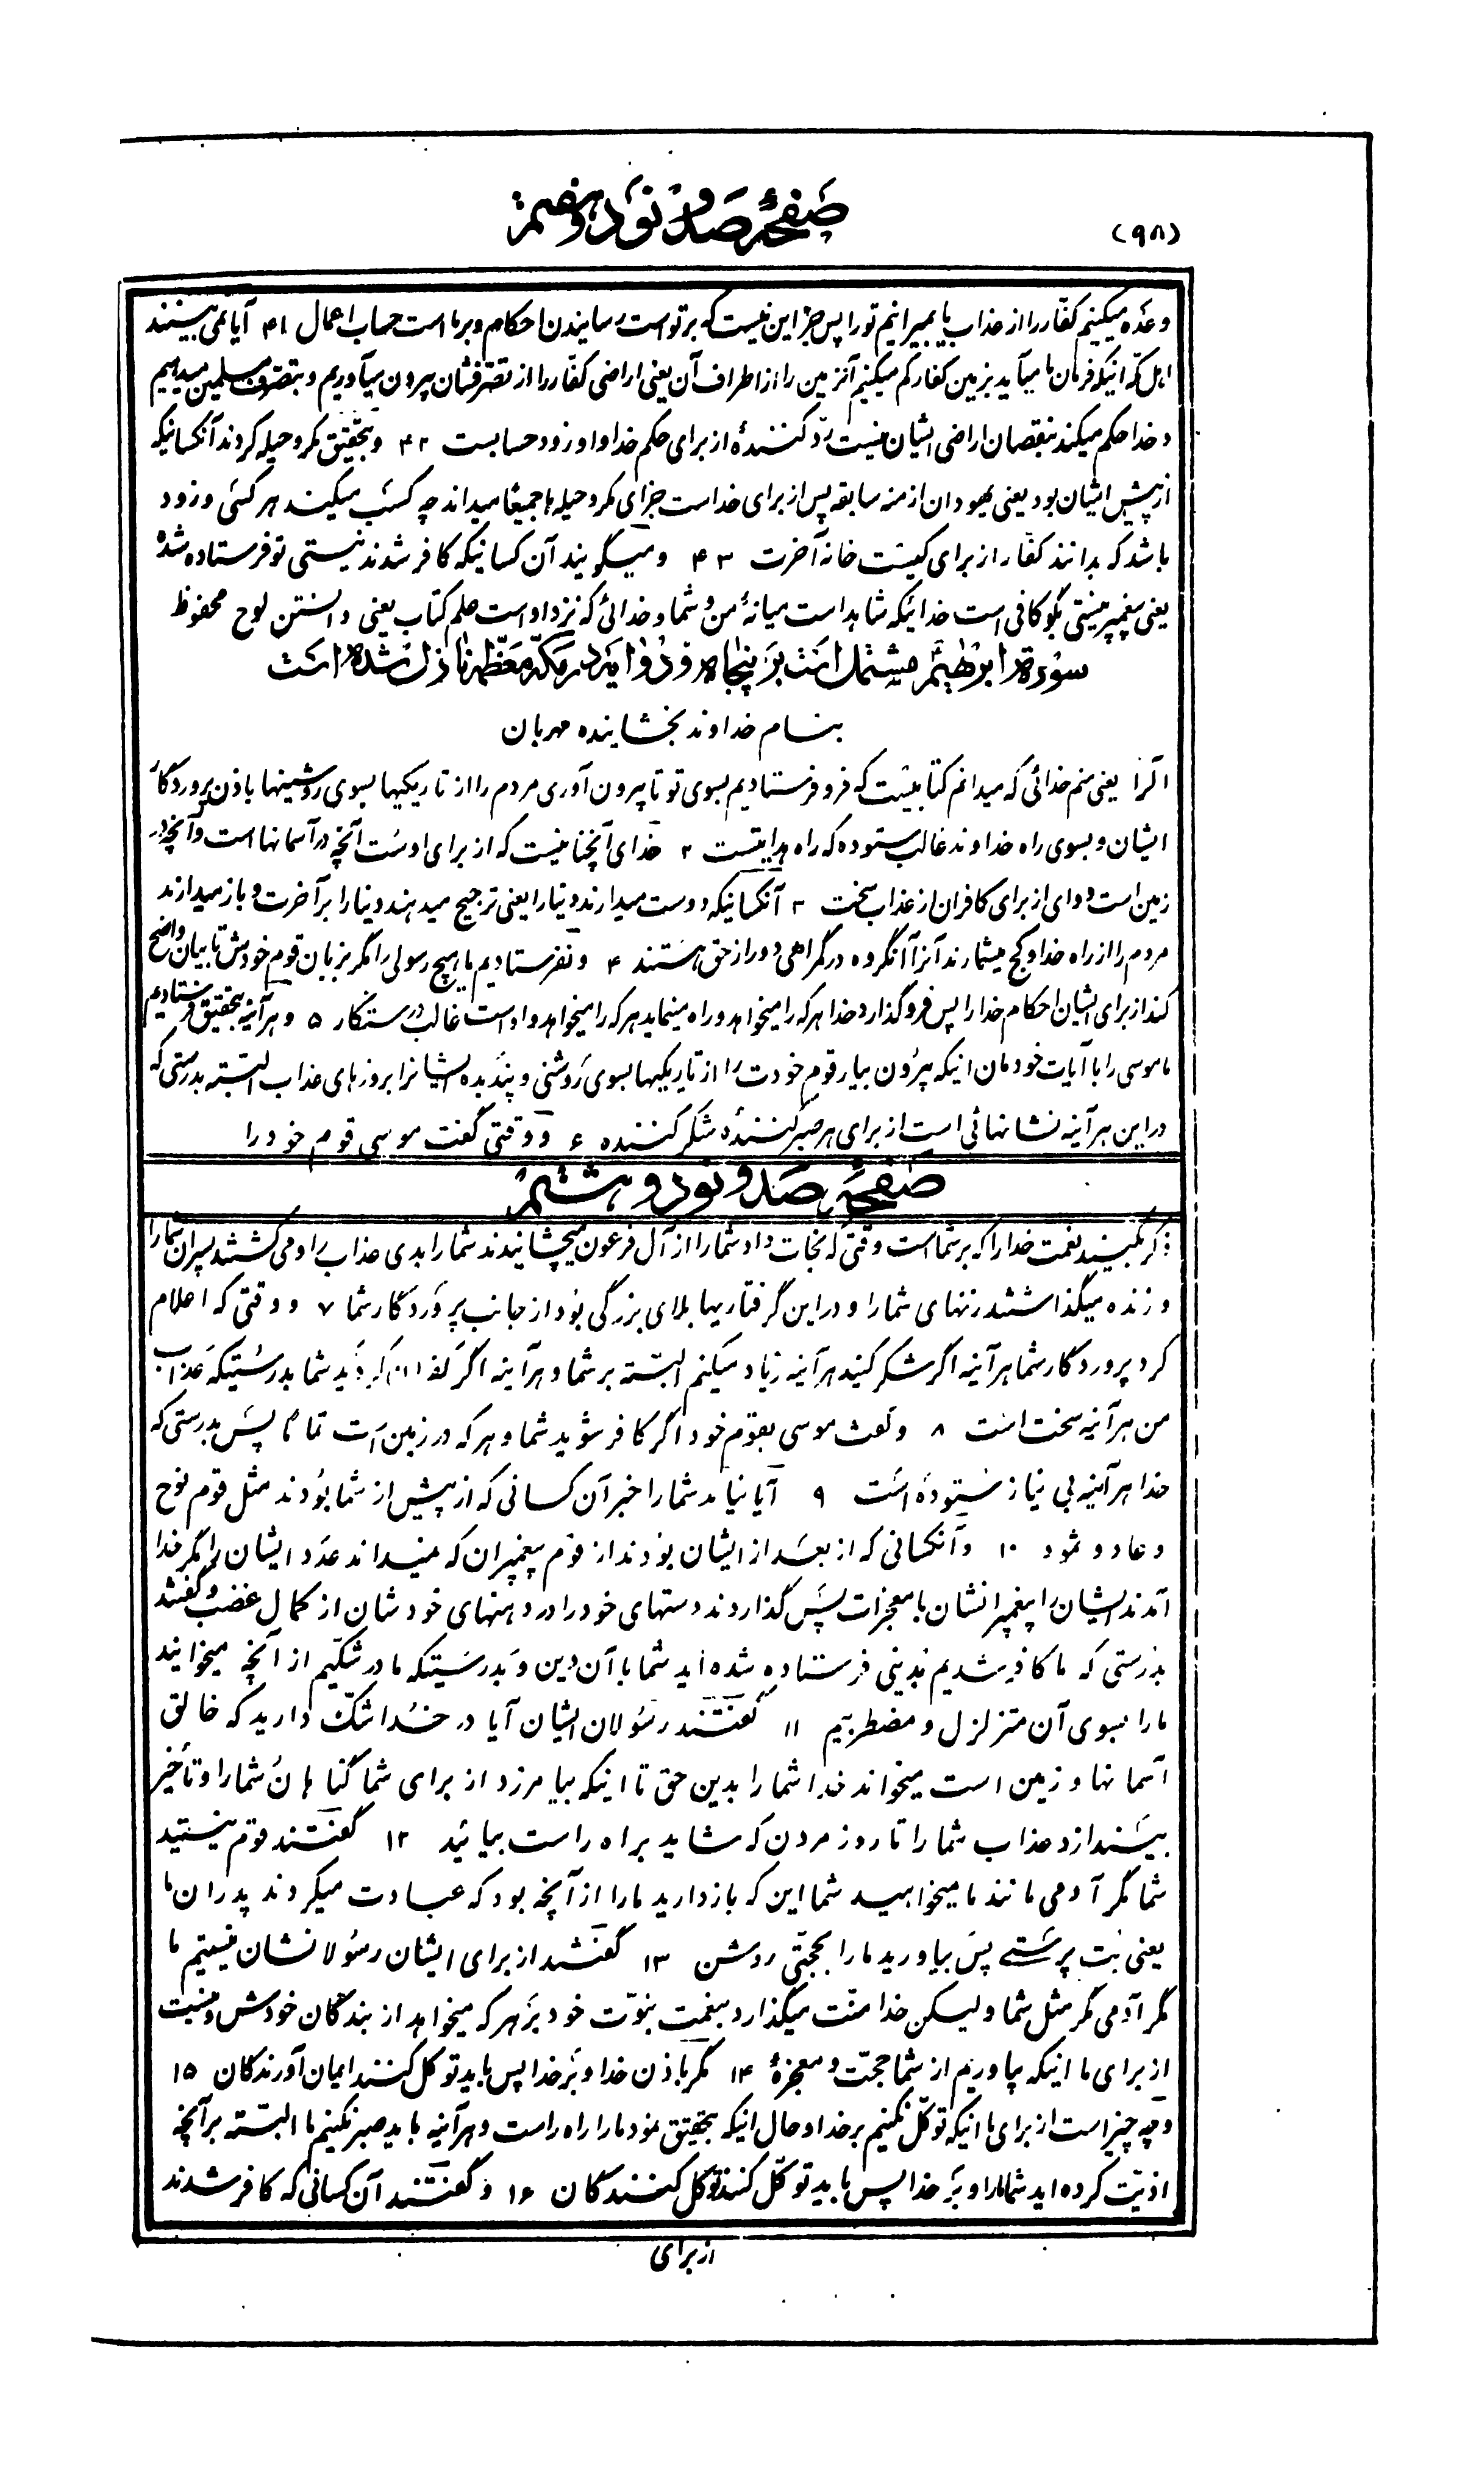 (۹۸)
صفحهٔ صد و نود و هفتم
وعده میکنیم کفّار را از عذاب یا بمیرانیم تو را پس جز این نیست که بر تو است رسانیدن احکام و بر ما است حساب اعمال ۴۱ آیا نمی بینند
اهل مکّه اینکه فرمان ما میآید بزمین کفار کم میکنیم آنزمین را از اطراف آن یعنی اراضی کفّار را از تصرّفشان بیرون میآوریم و بتصرّف مسلمین میدهیم
و خدا حکم میکند بنقصان اراضی ایشان نیست ردّ کنندهٔ از برای حکم خدا و او زود حسابست ۴۲ و بتحقیق مکر و حیله کردند آنکسانیکه
از پیش ایشان بود یعنی یهودان ازمنه سابقه پس از برای خداست جزای مکر و حیله ها جمیعًا میداند چه کسب میکیند هر کسی و زود
باشد که بدانند کفّار از برای کیست خانه آخرت ۴۳ و میگویند آن کسانیکه کافر شدند نیستی تو فرستاده شده
یعنی پیغمبر نیستی بگو کافی است خدائیکه شاهد است میانهٔ من و شما و خدائی که نزد او است علم کتاب یعنی دانستن لوح محفوظ
سورة ابرٰهیم مشتمل است بر پنجاه و دو ایه در مکّه معظّمه نازل شده است
بنام خداوند بخشاینده مهربان
الرا یعنی منم خدائی که میدانم کتابیست که فرو فرستادیم بسوی تو تا بیرون آوری مردم را از تاریکیها بسوی روشنیها باذن پروردگار
ایشان و بسوی راه خداوند غالب ستوده که راه هدایتست ۲ خدای آنچنانیست که از برای اوست آنچه در آسمانها است و آنچه در
زمین است و وای از برای کافران از عذاب سخت ۳ آنکسانیکه دوست میدارند دنیا را یعنی ترجیح میدهند دنیا را بر آخرت و باز میدارند
مردم را از راه خدا و کج میشمارند آنرا آنگروه در گمراهی دور از حق هستند ۴ و نفرستادیم ما هیچ رسولی را مگر بزبان قوم خودش تا بیان واضح
کند از برای ایشان احکام خدا را پس فرو گذارد خدا هر که را میخواهد و راه مینماید هر که را میخواهد و او است غالب درستکار ۵ و هر آینه بتحقیق فرستادیم
ما موسی را با آیات خودمان اینکه بیرون بیار قوم خودت را از تاریکیها بسوی روشنی و پند بده ایشانرا بروزهای عذاب البتّه بدرستی که
در این هر آینه نشانهائی است از برای هر صبر کنندهٔ شکر کننده ۶ و وقتی گفت موسی قوم خود را
صفحهٔ صد و نود و هشتم
ذکر بکنید نعمت خدا را که بر شما است وقتی که نجات داد شما را از آل فرعون میچشانیدند شما را بدی عذاب را و می کشتند پسران شما را
و زنده میگذاشتند زنهای شما را و در این گرفتاریها بلای بزرگی بود از جانب پروردگار شما ۷ و وقتی که اعلام
کرد پروردگار شما هر آینه اگر شکر کنید هر آینه زیاد میکنم البتّه بر شما و هر آینه اگر کفران کردید شما بدرستیکه عذاب
من هر آینه سخت است ۸ و گفت موسی بقوم خود اگر کافر شوید شما و هر که در زمین است تماما پس بدرستی که
خدا هر آینه بی نیاز ستوده است ۹ آیا نیامد شما را خبر آن کسانی که از پیش از شما بودند مثل قوم نوح
و عاد و ثمود ۱۰ و آنکسانی که از بعد از ایشان بودند از قوم پیغمبران که نمیداند عدد ایشان را مگر خدا
آمدند ایشان را پیغمبرانشان با معجزات پس گذاردند دستهای خود را در دهنهای خودشان از کمال غضب و گفتند
بدرستی که ما کافر شدیم بدینی فرستاده شده اید شما با آن دین و بدرستیکه ما در شکّیم از آنچه میخوانید
ما را بسوی آن متزلزل و مضطربیم ۱۱ گفتند رسولان ایشان آیا در خدا شکّ دارید که خالق
آسمانها و زمین است میخواند خدا شما را بدین حق تا اینکه بیامرزد از برای شما گناهان شما را و تأخیر
بیندازد عذاب شما را تا روز مردن که شاید براه راست بیائید ۱۲ گفتند قوم نیستید
شما مگر آدمی مانند ما میخواهید شما این که بازدارید ما را از آنچه بود که عبادت میکردند پدران ما
یعنی بت پرستے پس بیاورید ما را بحجّتی روشن ۱۳ گفتند از برای ایشان رسولانشان نیستیم ما
مگر آدمی مگر مثل شما و لیکن خدا منّت میگذارد بنعمت نبوّت خود بر هر که میخواهد از بندگان خودش و نیست
از برای ما اینکه بیاوریم از شما حجّت و معجزهٔ ۱۴ مگر باذن خدا و بر خدا پس باید توکل کنند ایمان آورندگان ۱۵
و چه چیز است از برای ما اینکه توکّل نکنیم بر خدا و حال اینکه بتحقیق نمود ما را راه راست و هر آینه باید صبر نکنیم ما البتّه بر آنچه
اذیّت کرده اید شما ما را و بر خدا پس باید توکّل کنند توکّل کنندگان ۱۶ و گفتند آن کسانی که کافر شدند
از برای